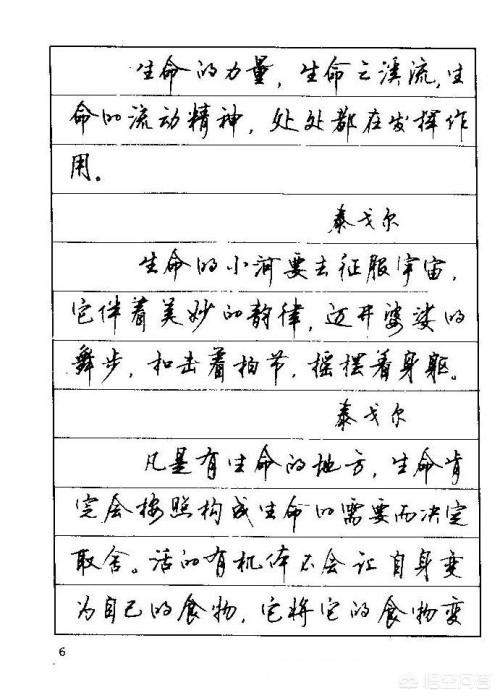 生命的力量，生命之溪流，生
命的流动精神，处处都在发挥作
用。
泰戈尔
生命的小河要去征服宇宙，
它伴着美妙的韵律，迈开婆娑的
舞步，和击着拍节，摇摆着身躯。
泰戈尔
凡是有生命的地方，生命肯
定会按照构成生命的需要而决定
取舍。活的有机体不会让自身变
为自己的食物，它将它的食物变
6
悟空问答